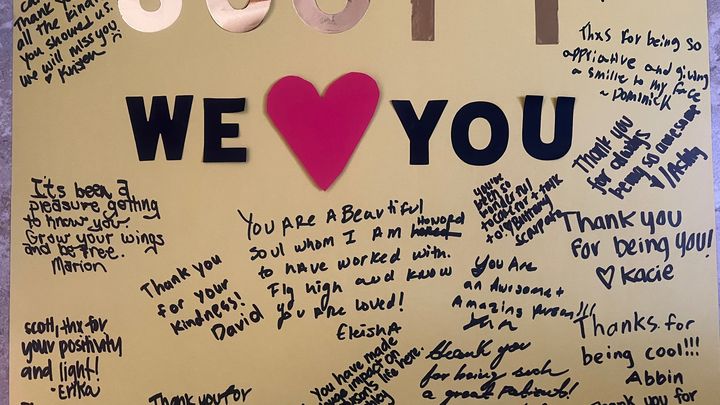 SCOTT
Thank
all the kind
you showed us.
we will miss you
Kristen
Thxs for being so
appliative and giving
a smille to my face
~ Dominick
WE YOU
Thank you
for always
being so awesome
Ashly
It's been a
pleasure getting
to know you.
Grow your wings
and be free.
Marion
You ARE A BeautifuL
soul whom I AM HONORD
to HAVE worked with.
Fly high and know
you are loved!
EleishA
you've
been so
wonderful
to care for + talk
to!
Thank you
for your
kindness!
David
You Are
an Awesome +
Amazing person!!!
Thank you
for being YOU!
Kacie
scott, thx for
your positivity
and light!
- Erika
Thanks for
being cool!!!
Abbin
You have made
impact on
life here.
thank you
for being such
a great Patient!
Thank you for
Thank you for